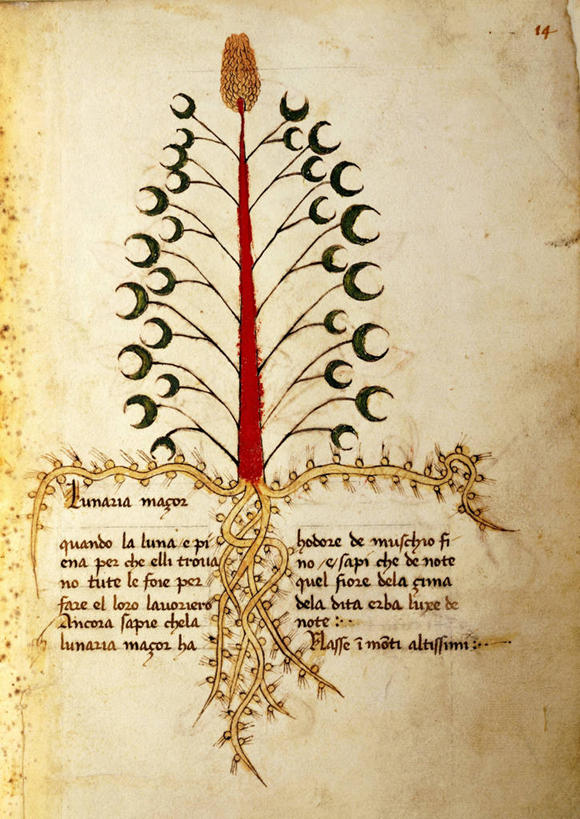 14
Lunaria maçor
quando la luna e pi
ena per che elli trova
no tute le foie per
fare el loro lavoriero
Ancora sapie chela
lunaria maçor ha
hodore de muschio fi
no e sapi che de note
quel fiore dela çima
dela dita erba luxe de
note :·
Nasse ī mōti altissimi :·